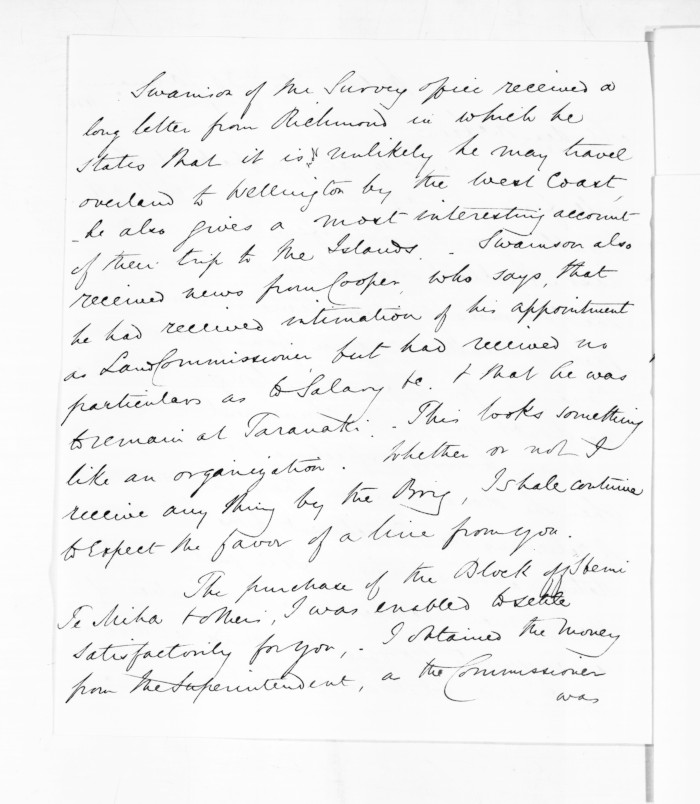 Swainson of the Survey office received a
long letter from Richmond in which he
states that it is unlikely he may travel
overland to Wellington by the West Coast,
- he also gives a most interesting account
of their trip to the Islands. - Swainson also
received news from Cooper, who says, that
he had received intimation of his appointment
as Land Commissioner, but had received no
particulars as to Salary &c. & that he was
to remain at Taranaki. - This looks something
like an organization. Whether or not I
receive any thing by the Brig, I shale continue
to Expect the favor of a line from you.
The purchase of the Block off Hemi
Te Miha & others, I was enabled to settle
satisfactorily for you, - I obtained the money
from the Superintendent, as the Commissioner
was